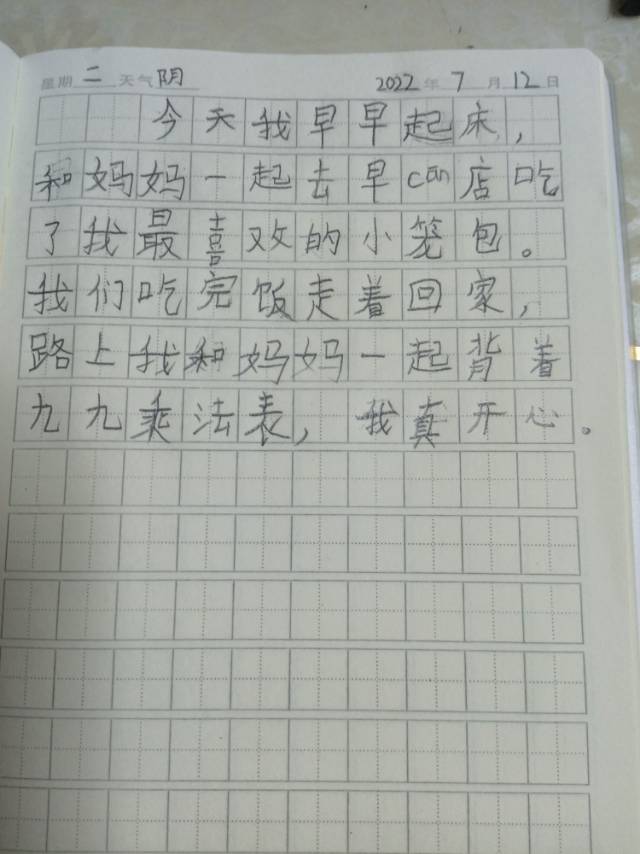 星期二 天气阴 2022年7月12日
今天我早早起床，
和妈妈一起去早can店吃
了我最喜欢的小笼包。
我们吃完饭走着回家，
路上我和妈妈一起背着
九九乘法表，我真开心。